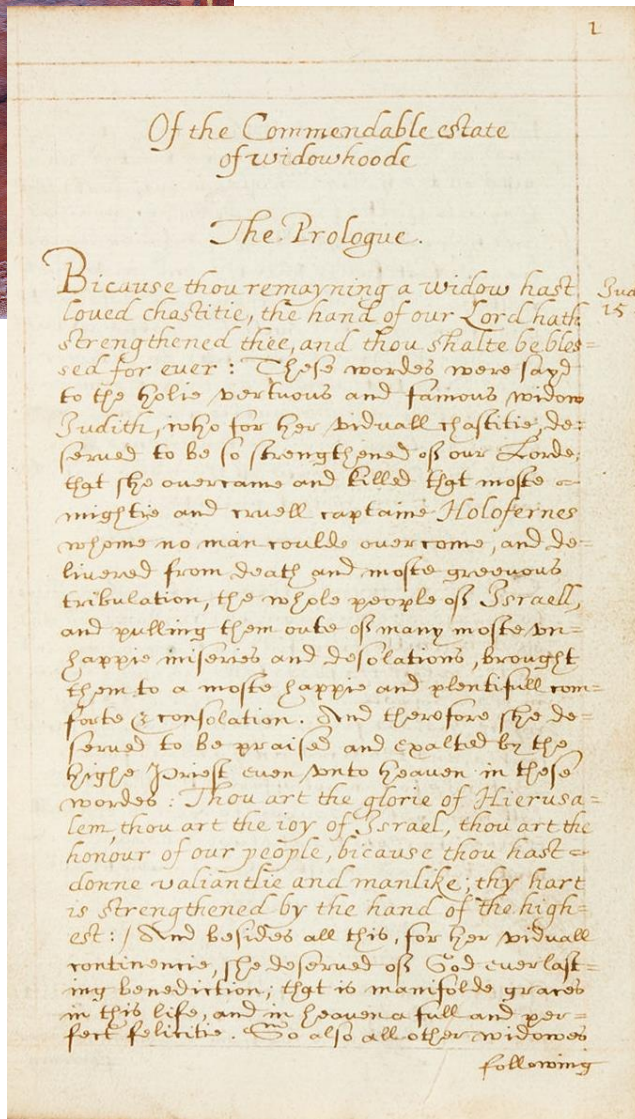 2
Of the Commendable estate
of widowhoode
The Prologue.
Bicause thou remayning a widow hast
Jud
15
loved chastitie, the hand of our Lord hath
strengthened thee, and thou shalte be bles=
sed for euer : These wordes were sayd
to the holie vertuous and famous widow
Judith, who for her viduall chastitie, de=
serued to be so strengthened of our Lorde,
that she overcame and killed that moste
mightie and cruell captaine Holofernes
whome no man coulde overcome, and de=
livered from death and moste greevous
tribulation, the whole people of Israell,
and pulling them oute of many moste vn=
happie miseries and desolations, brought
them to a moste happie and plentifull com=
forte & consolation. And therefore she de=
served to be praised and exalted by the
highe Priest even vnto heaven in these
wordes : Thou art the glorie of Hierusa=
lem, thou art the ioy of Israel, thou art the
honour of our people, bicause thou hast
donne valiantlie and manlike; thy hart
is strengthened by the hand of the high=
est : / And besides all this, for her viduall
continencie, she deserued of God everlast=
ing benediction; that is manifolde graces
in this life, and in heaven a full and per=
fect felicitie. So also all other widowes
following